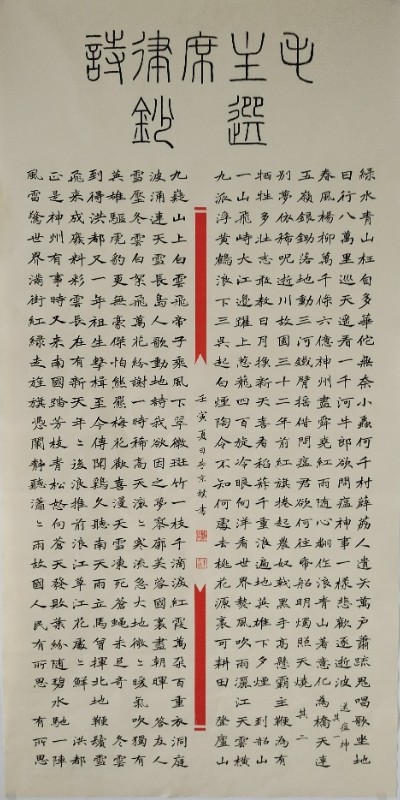 毛主席律詩
選鈔
綠水青山枉自多華佗無奈小蟲何千村薜荔人遺矢萬戶蕭疏鬼唱歌坐地
日行八萬里巡天遙看一千河牛郎欲問瘟神事一樣悲歡逐逝波 送瘟神 其一
春風楊柳萬千條六億神州盡舜堯紅雨隨心翻作浪青山著意化為橋天連
五嶺銀鋤落地動三河鐵臂搖借問瘟君欲何往帝船明燭照天燒 其二
別夢依稀呪逝川故園三十二年前紅旗捲起農奴戟黑手高懸霸主鞭為有
犧牲多壯志敢教日月換新天喜看稻菽千重浪遍地英雄下夕煙 到韶山
一山飛峙大江邊躍上蔥蘢四百旋冷眼向洋看世界熱風吹雨灑江天雲橫
九派浮黃鶴浪下三吳起白煙陶令不知何處去桃花源裏可耕田 登廬山
壬寅夏日李京書
九嶷山上白雲飛帝子乘風下翠微斑竹一枝千滴淚紅霞萬朵百重衣洞庭
波涌連天雪長島人歌動地詩我欲因之夢寥廓芙蓉國裏盡朝暉 答友人
雪壓冬雲白絮飛萬花紛謝一時稀高天滾〻寒流急大地微〻暖氣吹獨有
英雄驅虎豹更無豪傑怕熊羆梅花歡喜漫天雪凍死蒼蠅未足奇 冬雲
到得洪都又一年祖生擊楫至今傳聞鷄久聽南天雨立馬曾揮北地鞭鬢雪
飛來成廢料彩雲長在有新天年〻後浪推前浪江草江花處〻鮮 洪都
正是神州有事時又來南國踏芳枝青松怒向蒼天發敗葉紛隨碧水馳一陣
風雷驚世界滿街紅綠走旌旗憑闌靜聽瀟〻雨故國人民有所思 有所思